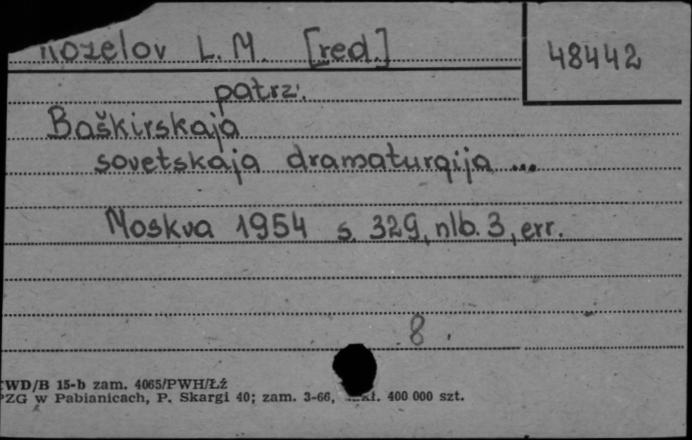 Kozelov L. M. [red.]
48442
patrz:
Baškirskaja
sovetskaja dramaturgija ...
Moskva 1954 s. 329, nlb. 3, err.
8
WD/B 15-b zam. 4065/PWH/Łź
PZG w Pabianicach, P. Skargi 40; zam. 3-66, 400 000 szt.